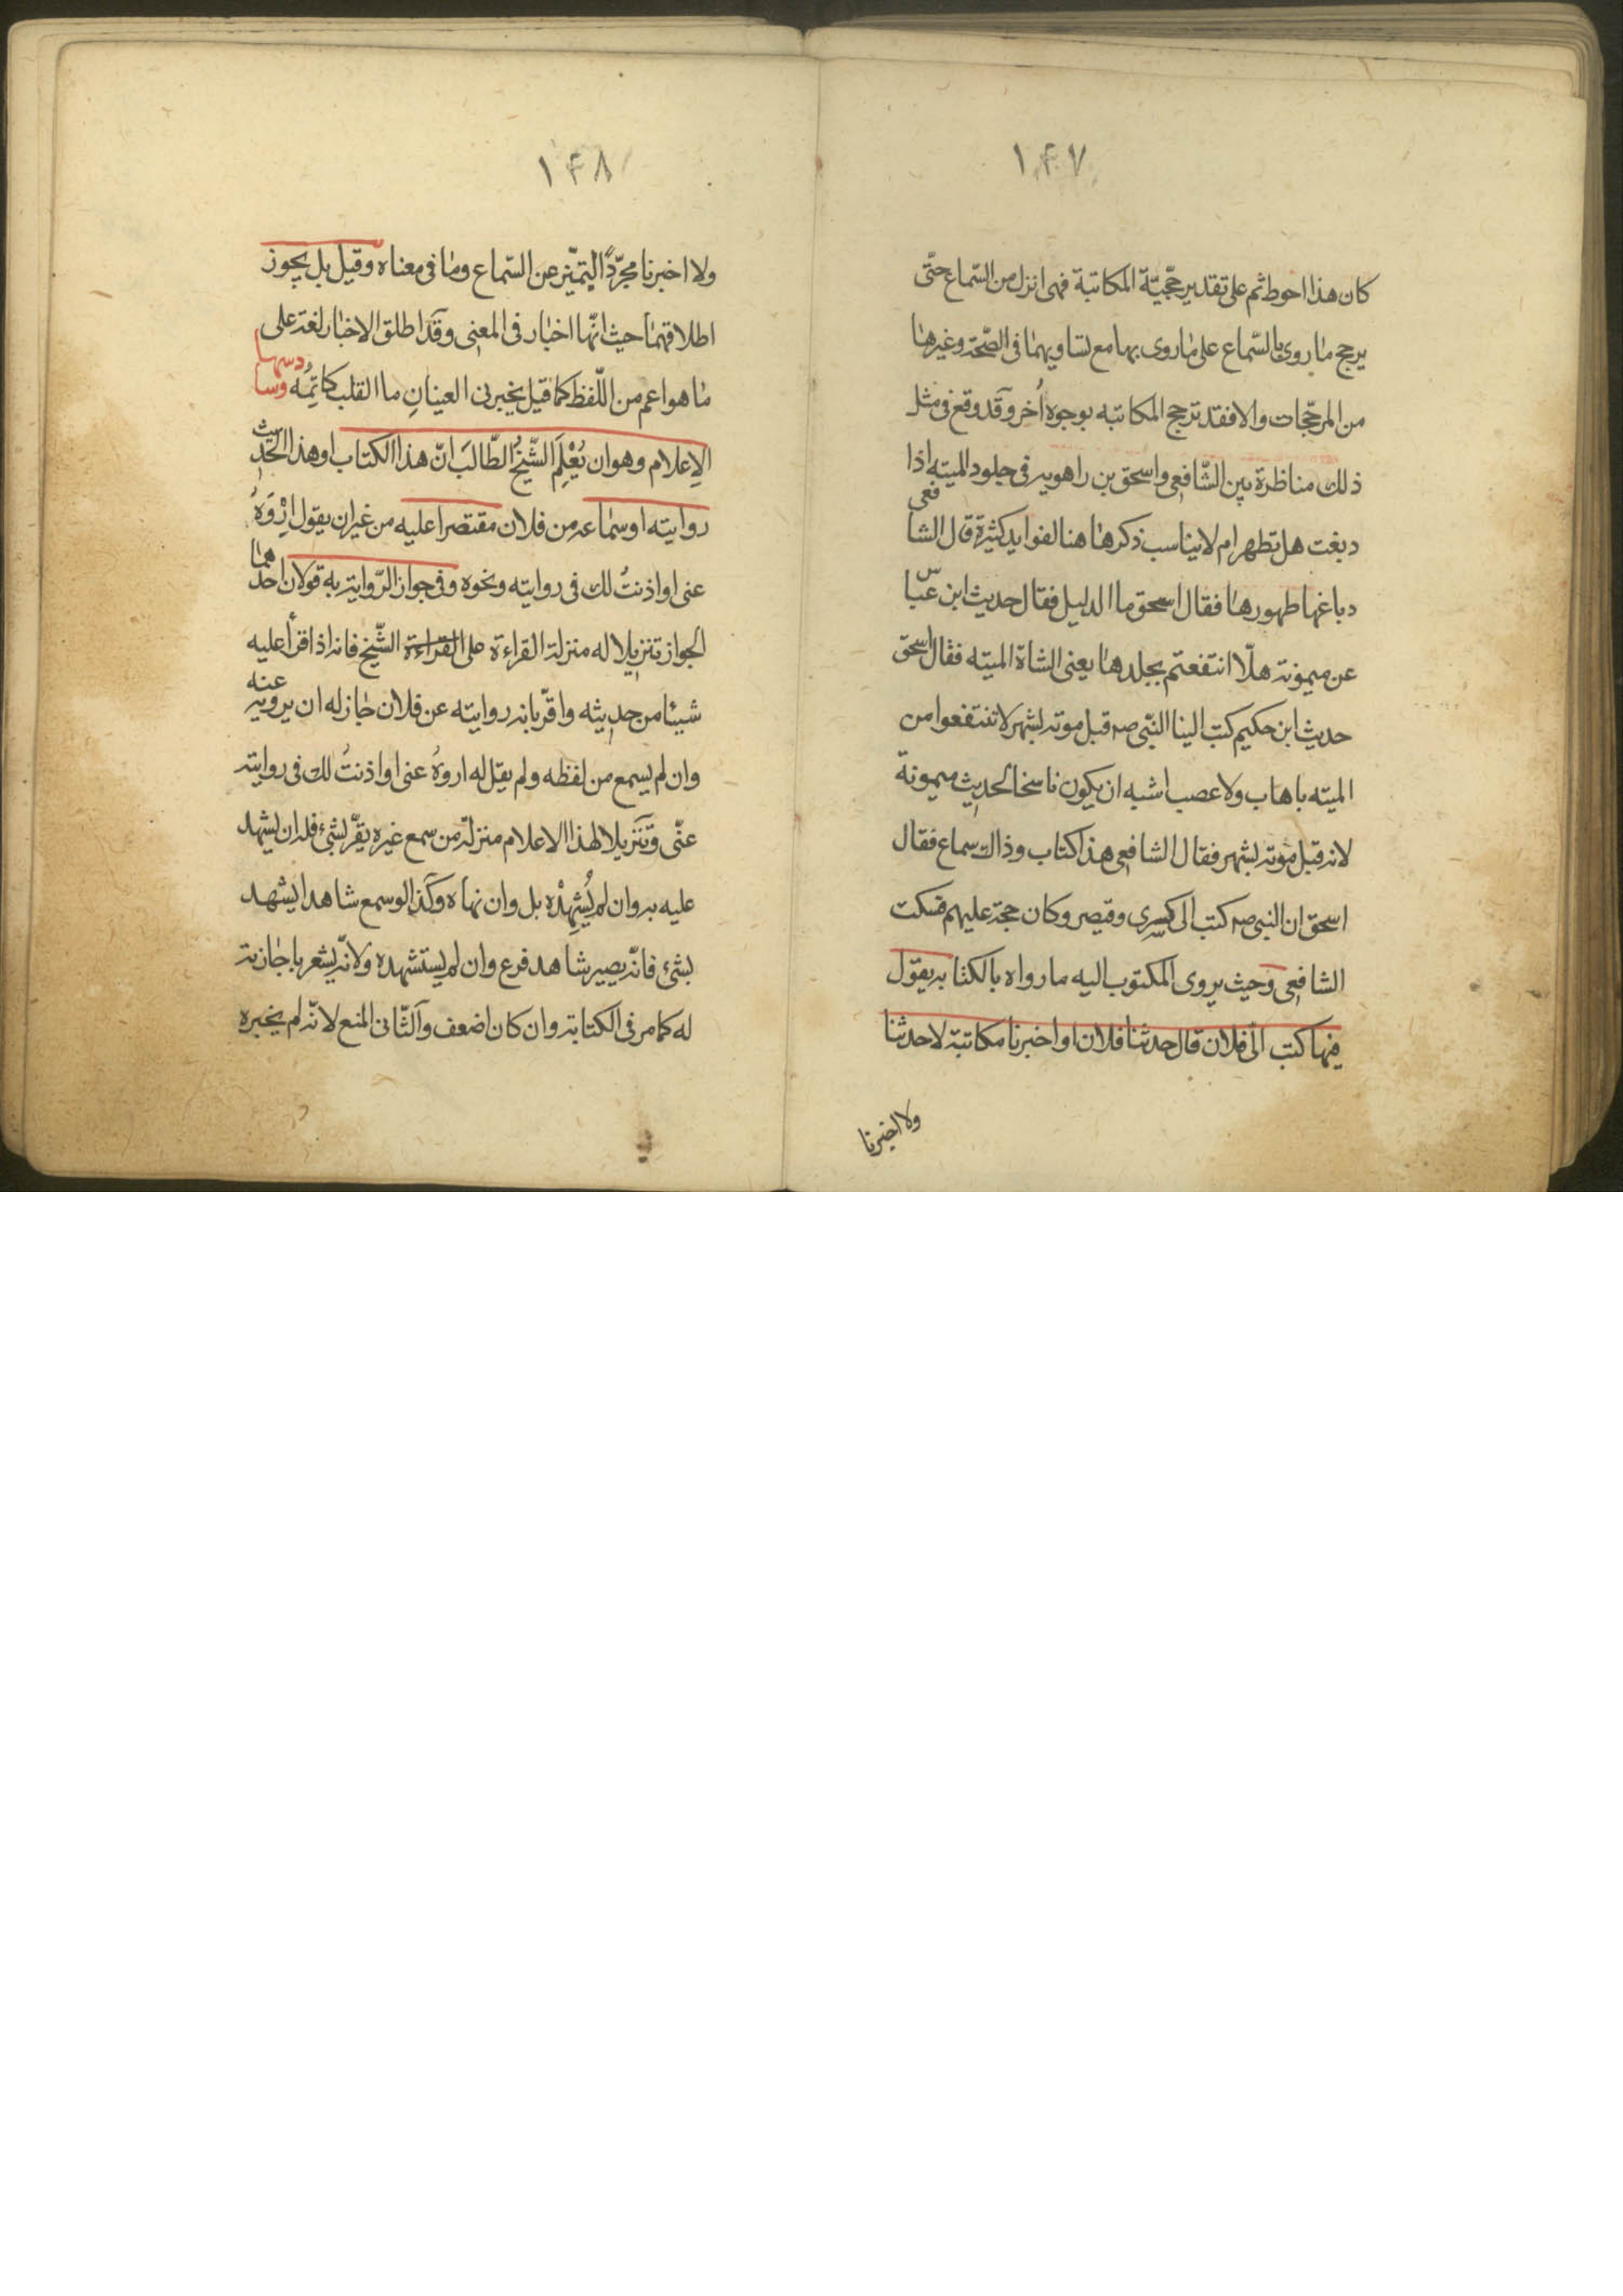 ١۴٧
كان هذا احوط ثم على تقدير حجّيّة المكاتبة فهى انزل من السّماع حتّى
يرجح ما روى بالسّماع على ما روى بها مع تساويهما فى الصّحّة وغيرها
من المرجّحات والا فقد ترجح المكاتبه بوجوه اُخر وقد وقع فى مثل
ذلك مناظرة بين الشّافعى واسحق بن راهويه فى جلود الميته اذا
دبغت هل تطهر ام لا يناسب ذكرها هنا لفوايد كثيرة قال الشافعى
دباغها طهورها فقال اسحق ما الدليل فقال حديث ابن عبّاس
عن ميمونة هلّا انتفعتم بجلدها يعنى الشاة الميته فقال اسحق
حديث ابن حكيم كتب الينا النّبى صه قبل موته بشهر لا تنتفعوا من
الميته باهاب ولا عصب اشبه ان يكون ناسخا لحديث ميمونة
لانه قبل موته بشهر فقال الشافعى هذا كتاب وذاك سماع فقال
اسحق ان النبى صه كتب الى كسرى وقيصر وكان حجة عليهم فسكت
الشافعى وحيث يروى المكتوب اليه ما رواه بالكتابه يقول
فيها كتب الىّ فلان قال حدثنا فلان او اخبرنا مكاتبة لا حدثنا
ولا اخبرنا
١۴٨
ولا اخبرنا مجرّداً ليتميّز عن السّماع وما فى معناه وقيل بل يجوز
اطلاقهما حيث انّها اخبار فى المعنى وقد اطلق الاخبار لغة على
ما هو اعم من اللّفظ كما قيل يخبرنى العينانِ ما القلب كاتِمُه وسادسها
الاِعلام وهو ان يُعْلِمَ الشّيخُ الطّالبَ انّ هذا الكتاب او هذا الحديث
روايته او سماعه من فلان مقتصرا عليه من غير ان يقول اِرْوَهُ
عنى او اذنتُ لك فى روايته ونحوه وفى جواز الرّواية به قولان احدهما
الجواز تنزيلا له منزلة القراءة على القراءة الشّيخ فانه اذا قرأ عليه
شيئا من حديثه واقرّ بانه روايته عن فلان جاز له ان يرويه عنه
وان لم يسمع من لفظه ولم يقل له اروهُ عنى او اذنتُ لك فى روايته
عنّى وتنزيلا لهذا الاعلام منزلة من سمع غيره يقرّ بشئ فله ان يشهد
عليه به وان لم يُشهِدْه بل وان نهاه وكذا لو سمع شاهدا يشهد
بشئ فانّه يصير شاهد فرع وان لم يستشهده ولانّه يشعر باجازته
له كما مر فى الكتابة وان كان اضعف والثّانى المنع لانّه لم يخبره